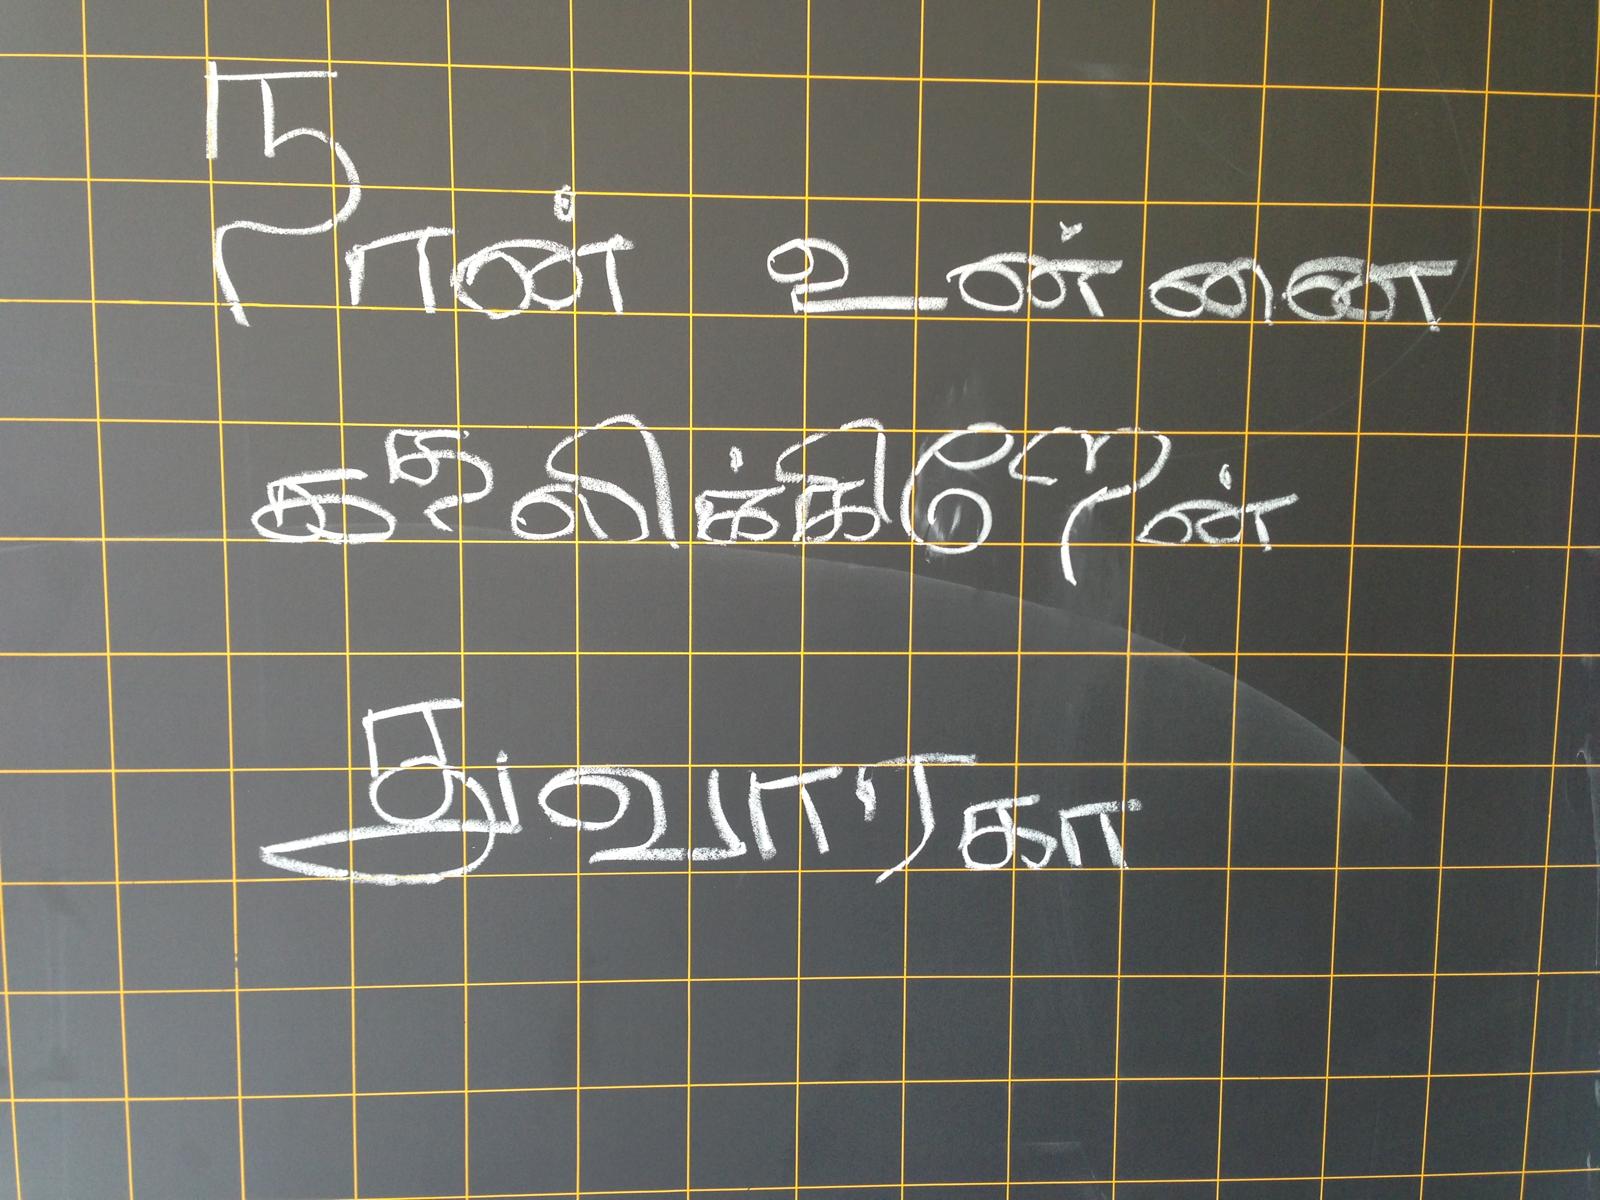 நான் உன்னை
கதலிக்கிறேன்
துவாரகா